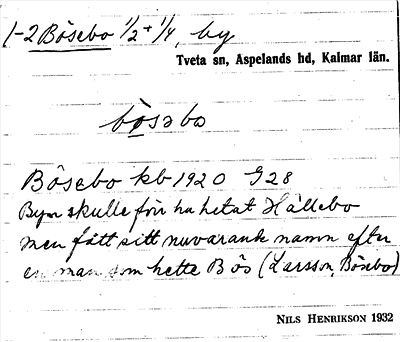 1-2 Bösebo 1/2 + 1/4, by
Tveta sn, Aspelands hd, Kalmar län.
bösəbo
Bösebo kb 1920 G28
Byn skulle förr ha hetat Hällebo
men fått sitt nuvarande namn efter
en man som hette Bös (Larsson, Bösebo)
NILS HENRIKSON 1932